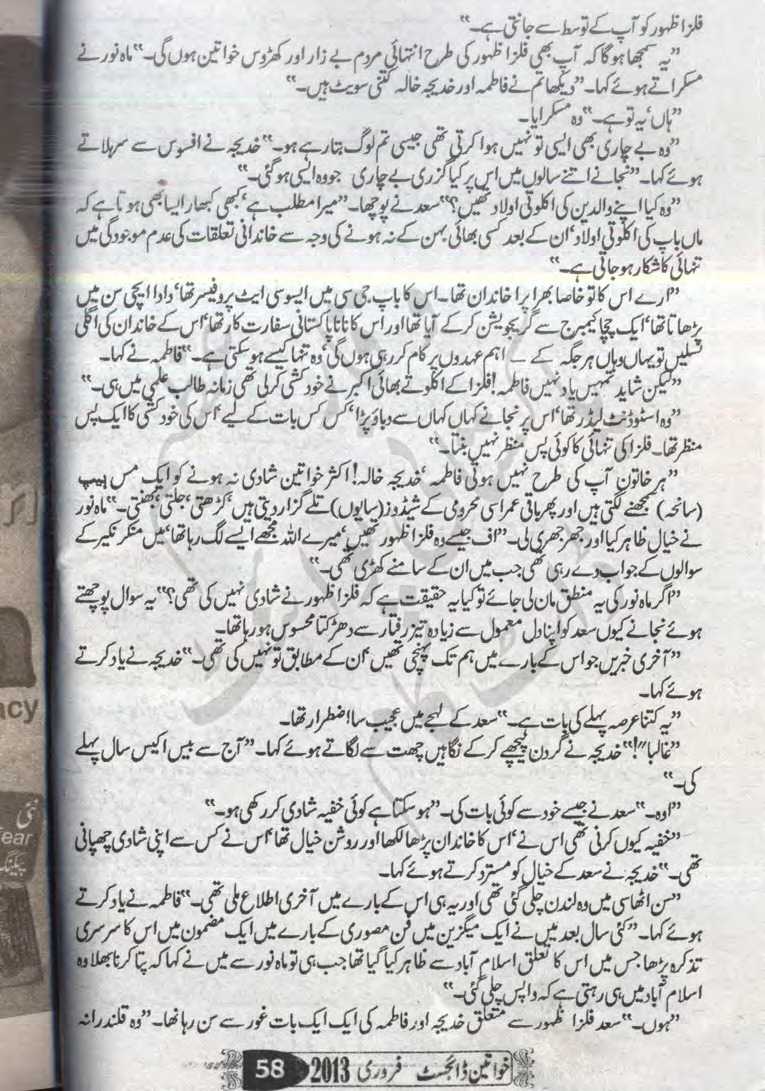 فلزا ظہور کو آپ کے توسط سے جانتی ہے۔"
"یہ سمجھا ہوگا کہ آپ بھی فلزا ظہور کی طرح انتہائی مردم بے زار اور کھڑوس خواتین ہوں گی۔" ماہ نور نے
مسکراتے ہوئے کہا۔ "دیکھا تم نے فاطمہ اور خدیجہ خالہ کتنی سویٹ ہیں۔"
"ہاں' یہ تو ہے۔" وہ مسکرایا۔
"وہ بے چاری بھی ایسی تو نہیں ہوا کرتی تھی جیسی تم لوگ بتا رہے ہو۔" خدیجہ نے افسوس سے سر ہلاتے
ہوئے کہا۔ "نجانے اتنے سالوں میں اس پر کیا گزری بے چاری جو وہ ایسی ہو گئی۔"
"وہ کیا اپنے والدین کی اکلوتی اولاد تھیں؟" سعد نے پوچھا۔ "میرا مطلب ہے' کبھی کبھار ایسا بھی ہوتا ہے کہ
ماں باپ کی اکلوتی اولاد' ان کے بعد کسی بھائی بہن کے نہ ہونے کی وجہ سے خاندانی تعلقات کی عدم موجودگی میں
تنہائی کا شکار ہو جاتی ہے۔"
"ارے اس کا تو خاصا بھرا پرا خاندان تھا۔ اس کا باپ جی سی میں ایسوسی ایٹ پروفیسر تھا' دادا ایچی سن میں
پڑھاتا تھا' ایک چچا کیمبرج سے گریجویشن کر کے آیا تھا اور اس کا نانا پاکستانی سفارت کار تھا' اس کے خاندان کی اگلی
نسلیں تو یہاں وہاں ہر جگہ کے اہم عہدوں پر کام کر رہی ہوں گی' وہ تنہا کیسے ہو سکتی ہے۔" فاطمہ نے کہا۔
"لیکن شاید تمہیں یاد نہیں فاطمہ! فلزا کے اکلوتے بھائی اکبر نے خود کشی کر لی تھی زمانہ طالب علمی میں ہی۔"
"وہ اسٹوڈنٹ لیڈر تھا' اس پر نجانے کہاں کہاں سے دباؤ پڑا' کس کس بات کے لیے' اس کی خود کشی کا ایک پس
منظر تھا۔ فلزا کی تنہائی کا کوئی پس منظر نہیں بنتا۔"
"ہر خاتون آپ کی طرح نہیں ہوتی فاطمہ' خدیجہ خالہ! اکثر خواتین شادی نہ ہونے کو ایک مس ہیپ
(سانحہ) سمجھنے لگتی ہیں اور پھر باقی عمر اسی محرومی کے شیڈوز (سایوں) تلے گزار دیتی ہیں' کڑھتی' جلتی' بھنتی۔" ماہ نور
نے خیال ظاہر کیا اور جھرجھری لی۔ "اف جیسے وہ فلزا ظہور تھیں' میرے اللہ مجھے ایسے لگ رہا تھا' میں منکر نکیر کے
سوالوں کے جواب دے رہی تھی جب میں ان کے سامنے کھڑی تھی۔"
"اگر ماہ نور کی یہ منطق مان لی جائے تو کیا یہ حقیقت ہے کہ فلزا ظہور نے شادی نہیں کی تھی؟" یہ سوال پوچھتے
ہوئے نجانے کیوں سعد کو اپنا دل معمول سے زیادہ تیز رفتار سے دھڑکتا محسوس ہو رہا تھا۔
"آخری خبریں جو اس کے بارے میں ہم تک پہنچی تھیں' ان کے مطابق تو نہیں کی تھی۔" خدیجہ نے یاد کرتے
ہوئے کہا۔
"یہ کتنا عرصہ پہلے کی بات ہے۔" سعد کے لہجے میں عجیب سا اضطرار تھا۔
"غالبا"!" خدیجہ نے گردن پیچھے کر کے نگاہیں چھت سے لگاتے ہوئے کہا۔ "آج سے بیس اکیس سال پہلے
کی۔"
"اوہ۔" سعد نے جیسے خود سے کوئی بات کی۔ "ہو سکتا ہے کوئی خفیہ شادی کر رکھی ہو۔"
"خفیہ کیوں کرنی تھی اس نے' اس کا خاندان پڑھا لکھا اور روشن خیال تھا' اس نے کس سے اپنی شادی چھپانی
تھی۔" خدیجہ نے سعد کے خیال کو مسترد کرتے ہوئے کہا۔
"سن اٹھاسی میں وہ لندن چلی گئی تھی اور یہ ہی اس کے بارے میں آخری اطلاع ملی تھی۔" فاطمہ نے یاد کرتے
ہوئے کہا۔ "کئی سال بعد میں نے ایک میگزین میں فن مصوری کے بارے میں ایک مضمون میں اس کا سرسری
تذکرہ پڑھا جس میں اس کا تعلق اسلام آباد سے ظاہر کیا گیا تھا جب ہی تو ماہ نور سے میں نے کہا کہ پتا کرنا بھلا وہ
اسلام آباد میں ہی رہتی ہے کہ واپس چلی گئی۔"
"ہوں۔" سعد فلزا ظہور سے متعلق خدیجہ اور فاطمہ کی ایک ایک بات غور سے سن رہا تھا۔ "وہ قلندرانہ
خواتین ڈائجسٹ فروری 2013 58
acy
نئی
ear